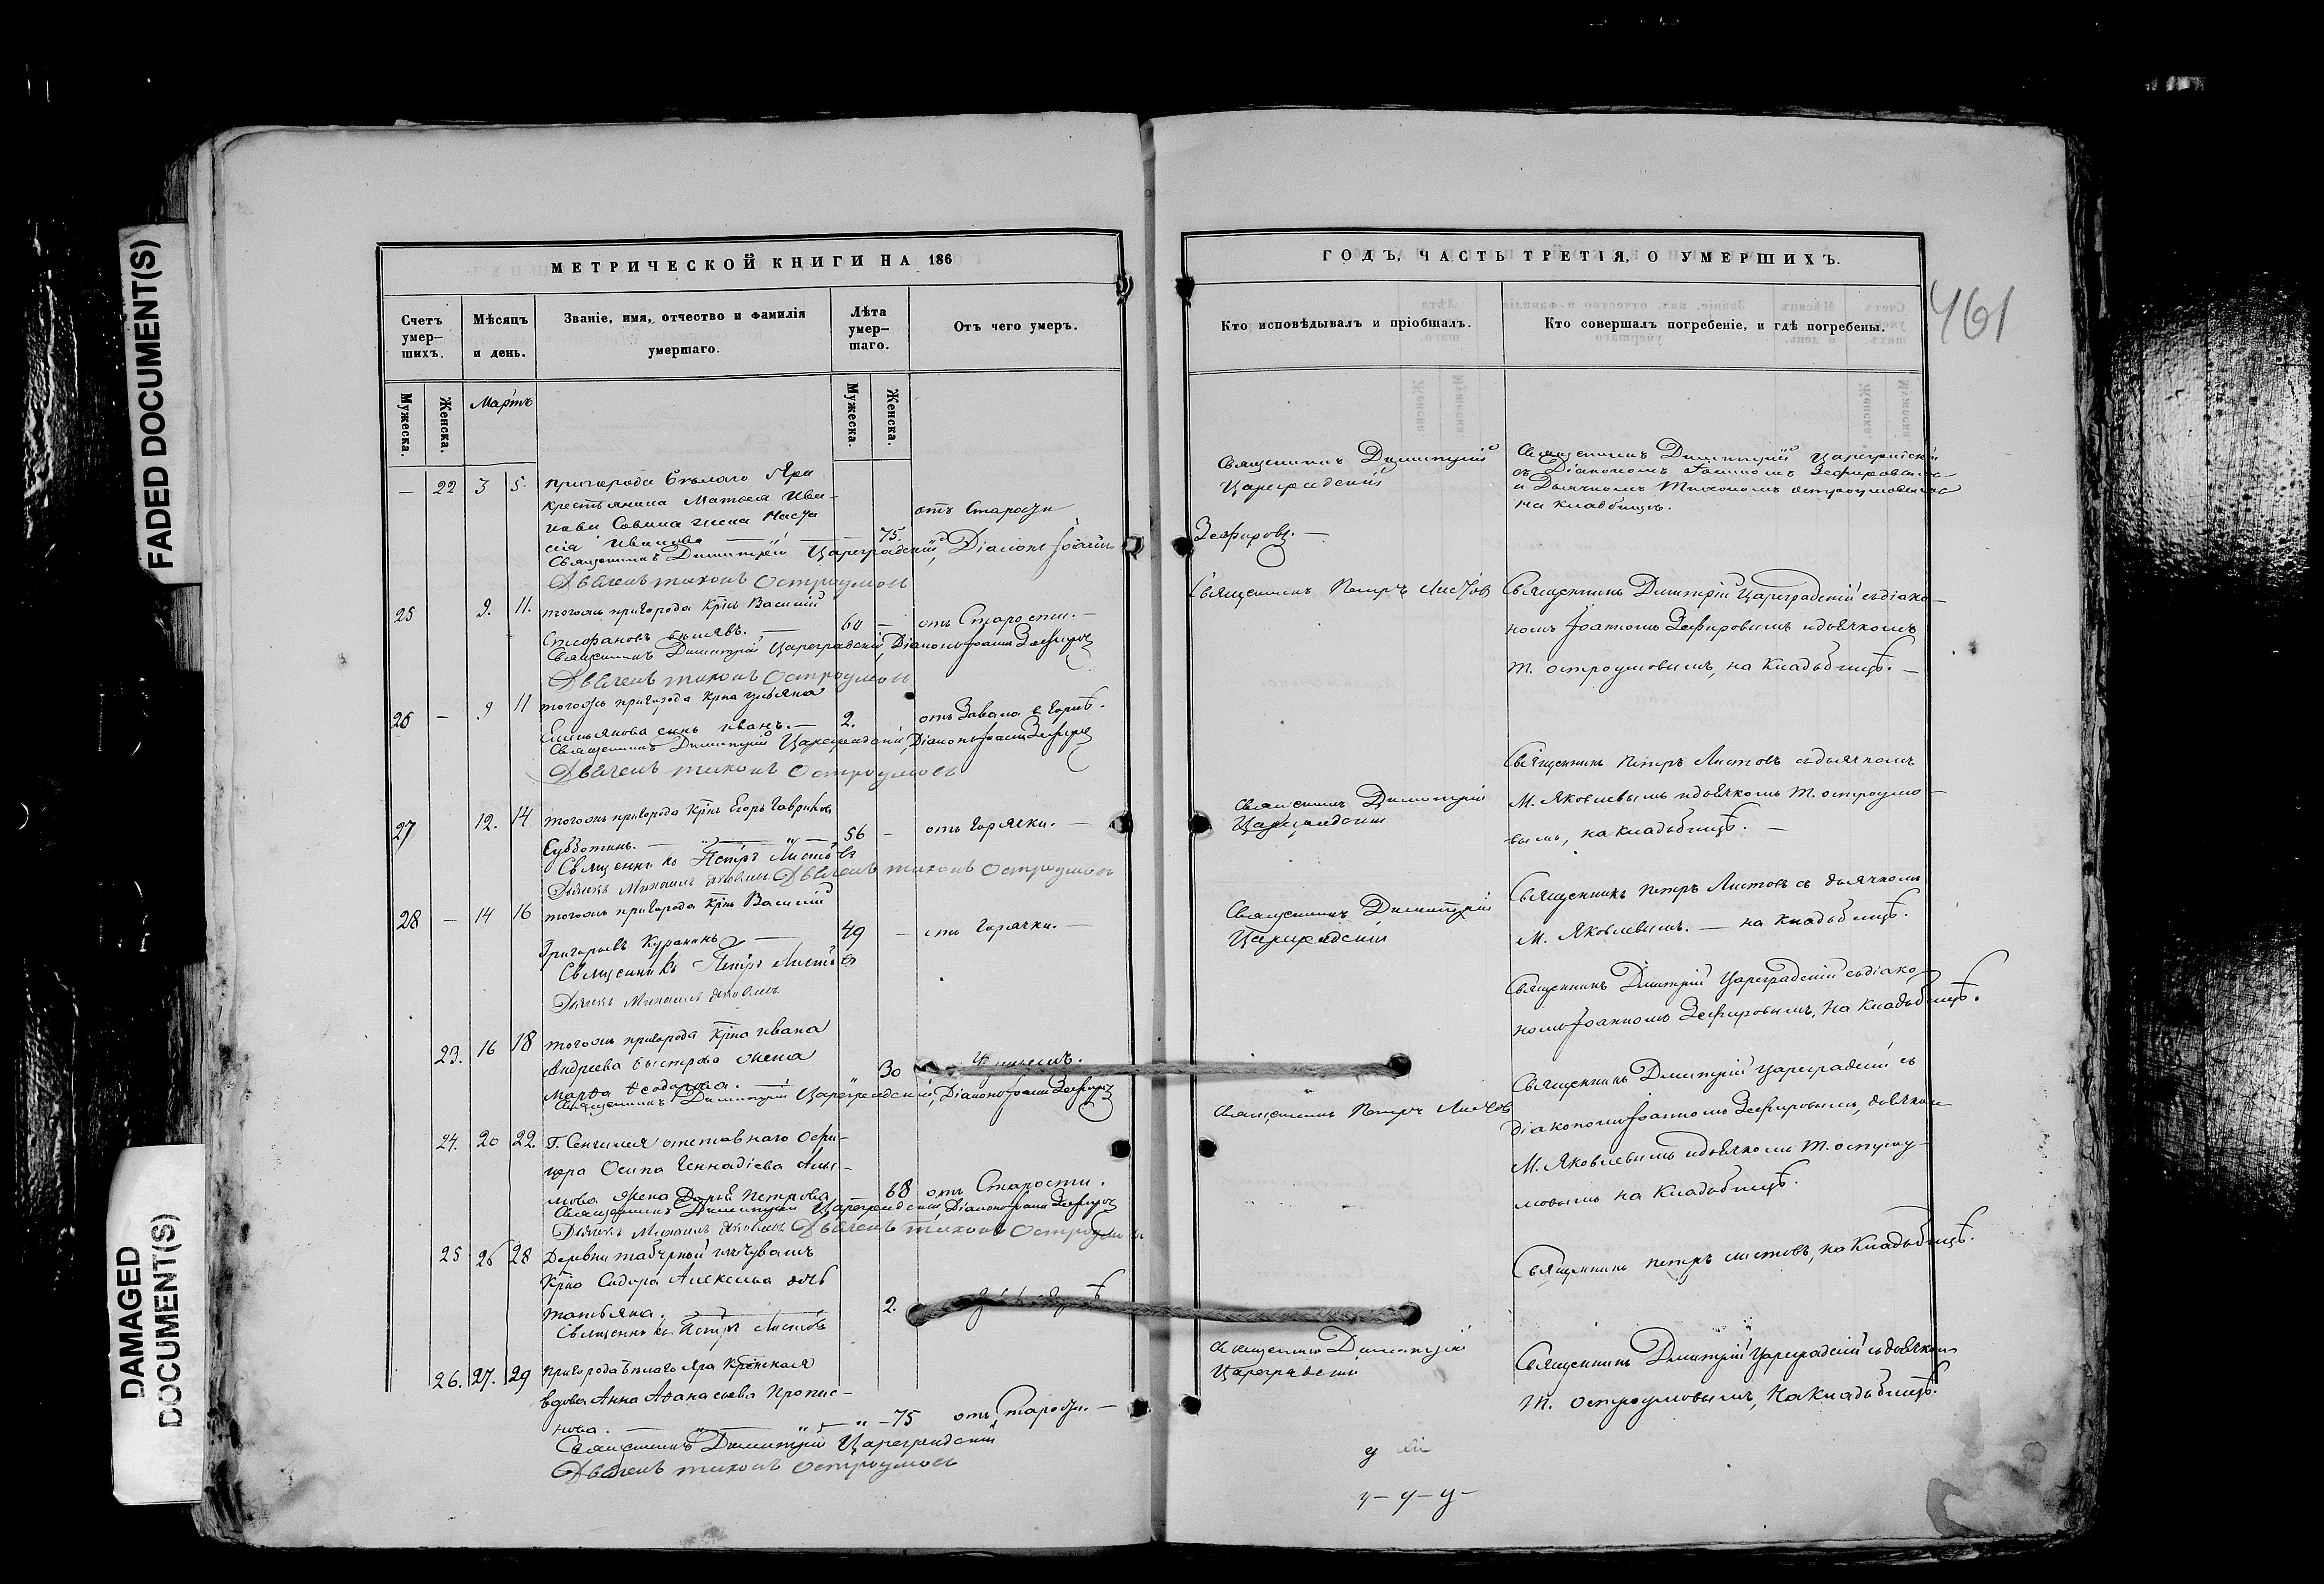 FADED DOCUMENT(S)
DAMAGED
DOCUMENT(S)
МЕТРИЧЕСКОЙ КНИГИ НА 186
Счетъ
умер-
шихъ.
Мѣсяцъ
и день.
Званіе, имя, отчество и фамилія
умершаго.
Лѣта
умер-
шаго.
Отъ чего умеръ.
Мужеска.
Женска.
Мартъ
Мужеска.
Женска.
— 22 3 5. пригорода Бѣлаго Яра
крестьянина Матвея Ива-
нова Савина жена Наста
отъ Старости
сія Иванова — 75.
Священникъ Димитрій Цареградскій, Діаконъ Іоаннъ
Дьячекъ Тихонъ Остроумовъ
25 9. 11. тогожъ пригорода Крнъ Василій
Стефановъ 60 — отъ Старости. —
Священникъ Димитрій Цареградскій, Діаконъ Іоаннъ Зефировъ
Дьячекъ Тихонъ Остроумовъ
26 — 9 11 тогожъ пригорода Крна
Емельянова сынъ Иванъ. — 2. отъ Завала въ Горлѣ.
Священникъ Димитрій Цареградскій, Діаконъ Іоаннъ Зефировъ
Дьячекъ Тихонъ Остроумовъ
27 12. 14 тогожъ пригорода Крнъ Егоръ Гавриловъ
Субботинъ. — 56 — отъ Горячки. —
Священникъ Петръ Листовъ
Дьячекъ Михаилъ Яковлевъ Дьячекъ Тихонъ Остроумовъ
28 — 14 16 тогожъ пригорода Крнъ Василій
Григорьевъ Куранинъ — 49 — отъ Горячки. —
Священникъ Петръ Листовъ
Дьячекъ Михаилъ Яковлевъ
23. 16 18 тогожъ пригорода Крна Ивана
Андреева Быстрова жена
Марѳа Ѳеодорова. — 30
Священникъ Димитрій Цареградскій, Діаконъ Іоаннъ Зефировъ
24. 20 22. Г. Сенгилея отставнаго Офи-
цера Осипа Геннадіева Алы-
мова жена Дарья Петрова — 68 отъ Старости.
Священникъ Димитрій Цареградскій, Діаконъ Іоаннъ Зефировъ
Дьячекъ Михаилъ Яковлевъ Дьячекъ Тихонъ Остроумовъ
25 26 28 Деревни
Крна Сидора Алексеева дочь
Татьяна. — 2.
Священникъ Петръ Листовъ
26. 27. 29 Пригорода Бѣлаго Яра Крѣнская
вдова Анна Аѳанасьева
нова. — „ — „ — „ — 75 отъ Старости. —
Священникъ Димитрій Цареградскій
Дьячекъ Тихонъ Остроумовъ
ГОДЪ, ЧАСТЬ ТРЕТІЯ, О УМЕРШИХЪ.
461
Кто исповѣдывалъ и пріобщалъ.
Кто совершалъ погребеніе, и гдѣ погребены.
Священникъ Димитрій
Цареградскій
Священникъ Димитрій Цареградскій
съ Діакономъ Іоанномъ Зефировымъ
и Дьячкомъ Тихономъ Остроумовымъ
на Кладбищѣ.
Зефировъ. —
Священникъ Петръ Листовъ
Священникъ Димитрій Цареградскій съ діако-
номъ Іоанномъ Зефировымъ и дьячкомъ
Т. Остроумовымъ, на Кладбищѣ. —
Священникъ Димитрій
Цареградскій
Священникъ Петръ Листовъ съ дьячкомъ
М. Яковлевымъ и дьячкомъ Т. Остроумо-
вымъ, на Кладбищѣ. —
Священникъ Димитрій
Цареградскій
Священникъ Петръ Листовъ съ дьячкомъ
М. Яковлевымъ. — на Кладбищѣ.
Священникъ Дмитрій Цареградскій съ діако
номъ Іоанномъ Зефировымъ, на Кладбищѣ.
Священникъ Петръ Листовъ
Священникъ Дмитрій Цареградскій съ
діакономъ Іоанномъ Зефировымъ, дьячкомъ
М. Яковлевымъ и дьячкомъ Т. Остроу-
мовымъ на Кладбищѣ.
Священникъ Петръ Листовъ, на Кладбищѣ.
Священникъ Димитрій
Цареградскій
Священникъ Дмитрій Цареградскій съ дьячкомъ
Т. Остроумовымъ, на Кладбищѣ.
у
у— у— у—